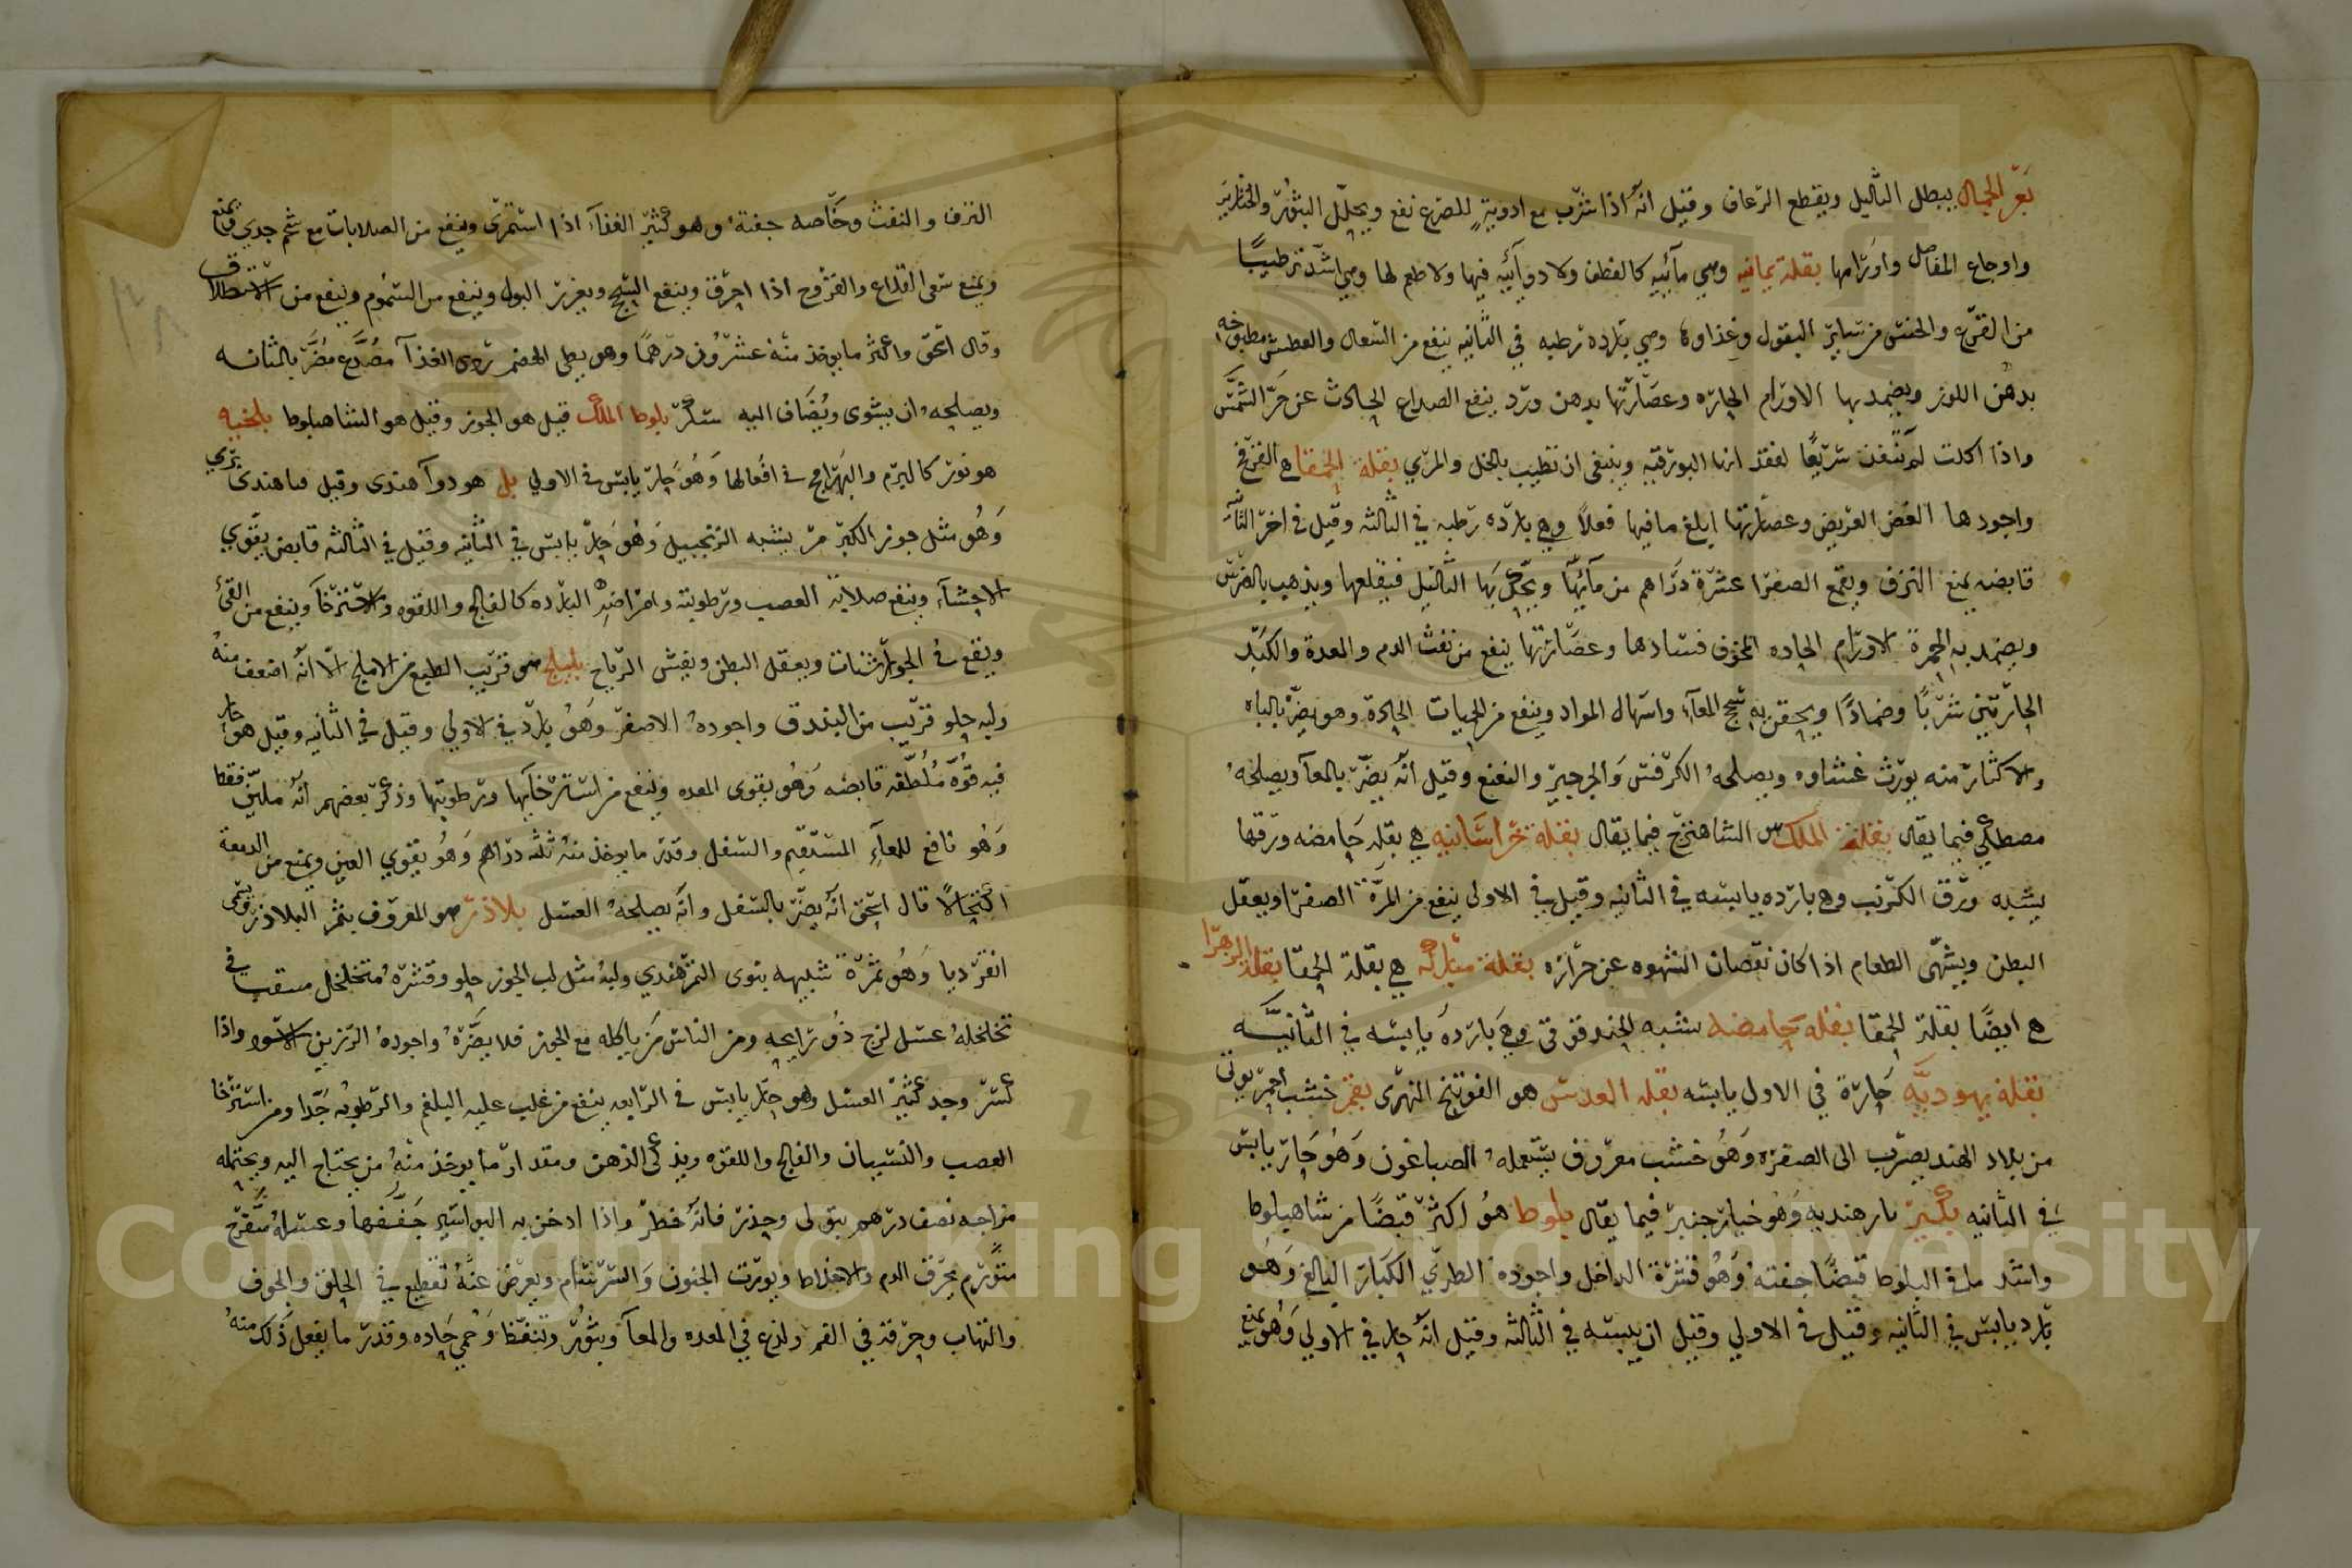 بعر الجمال يبطل الثآليل ويقطع الرعاف وقيل انه اذا شرب مع ادوية للصرع نفع ويحلل البثور والخنازير
واوجاع المفاصل واورامها بقلة يمانيه وهي مآئيه كالقطف ولا دوآئيه فيها ولا طعم لها وهي اشد ترطيبًا
من القرع والخس من ساير البقول وغذاوها وهي بارده رطبه في الثانيه ينفع من السعال والعطش مطبوخه
بدهن اللوز ويضمد بها الاورام الحاره وعصارتها بدهن ورد ينفع الصداع الحادث عن حر الشمس
واذا اكلت لم تنفذ سريعًا لفقد انها البورقيه وينبغي ان تطيب بالخل والمري بقلة الحمقا هي الفرفح
واجودها الغض العريض وعصارتها ابلغ ما فيها فعلاً وهي بارده رطبه في الثالثه وقيل في اخر الثانيه
قابضه يمنع النزف ويقمع الصفرا عشرة دراهم من مآئها ويحك بها الثاليل فيقلعها ويذهب بالضرس
ويضمد به الحمرة الاورام الحاده المخوف فسادها وعصارتها ينفع من نفث الدم والمعدة والكبد
الحارتين شربًا وضمادًا ويحقن به سحج المعآء واسهال المواد وينفع من الحميات الحادة وهو يضر بالباه
والاكثار منه يورث غشاوه ويصلحه الكرفس والجرجير والنعنع وقيل انه يضر بالمعآ ويصلحه
مصطكي فيما يقال بقلة الملك الشاهترج فيما يقال بقلة خراسانيه هي بقله حامضه ورقها
يشبه ورق الكرنب وهي بارده يابسه في الثانيه وقيل في الاولى ينفع من المرة الصفرا ويعقل
البطن ويشهي الطعام اذا كان نقصان الشهوه عن حراره بقلة مباركه هي بقلة الحمقا بقلة الزهرا
هي ايضًا بقلة الحمقا بقله حامضه يشبه الحندقوقى وهي بارده يابسه في الثانيه
بقلة يهوديه حارة في الاول يابسه بقله العدس هو الفوتنج النهري بقم خشب احمر يوتى
من بلاد الهند يضرب الى الصفره وهو خشب معروف يستعمله الصباغون وهو حار يابس
في الثانيه بكبر بار هنديه وهو خيار جنبر فيما يقال بلوط هو اكثر قبضًا من شاهبلوط
واشد ما في البلوط قبضًا جفته وهو قشرة الداخل واجوده الطري الكبار البالغ وهو
بارد يابس في الثانيه وقيل في الاولي وقيل ان يبسه في الثالثه وقيل انه حار في الاولي وهو يمنع
النزف والنفث وخاصه جفته وهو كثير الغذآء اذا استمرى وينفع من الصلابات مع شحم جدي ويمنع
ويمنع سعى القلاع والقروح اذا احرق وينفع السحج ويغزر البول وينفع من السموم وينفع من الاستطلاق
وقال اسحق واكثر ما يوخذ منه عشرون درهمًا وهو بطى الهضم ردى الغذآ مصدع مضر بالمثانه
ويصلحه ان يشوى ويضاف اليه سكر بلوط الملك قيل هو الجوز وقيل هو الشاهبلوط بلخيه
هو نور كاليرم والبهرامج في افعالها وهو حار يابس في الاولي بل هو دوآ هندى وقيل قثا هندى بري
وهو مثل جوز الكبر مر يشبه الزنجبيل وهو حار يابس في الثانيه وقيل في الثالثه قابض يقوي
الاحشآء وينفع صلابة العصب ورطوبته وامراضه البارده كالفالج واللقوه والاسترخآ وينفع من القئ
ويقع في الجوارشنات ويعقل البطن ويفش الرياح بليلج هو قريب الطبع من الاملج الا انه اضعف منه
ولبه حلو قريب من البندق واجوده الاصفر وهو بارد في الاولي وقيل في الثانيه وقيل هو حار
فيه قوه ملطفه قابضه وهو يقوى المعده وينفع من استرخآيها ورطوبتها وذكر بعضهم انه ملين فقط
وهو نافع للمعآء المستقيم والسفل وقدر ما يوخذ منه ثلثه دراهم وهو يقوي العين ويمنع من الدمعة
اكتحالاً قال اسحق انه يضر بالسفل وانه يصلحه العسل بلاذر هو المعروف بثمر البلاذر ويسمى
انقرديا وهو ثمرة شبيهه بنوى التمر هندي ولبه مثل لب الجوز حلو وقشره متخلخل مثقب في
تخلخله عسل لزج ذو رايحه ومن الناس من ياكله مع الجوز فلا يضره واجوده الرزين الاسود واذا
كسر وجد كثير العسل وهو حار يابس في الرابعه ينفع من غلب عليه البلغم والرطوبه جدا ومن استرخا
العصب والنسيان والفالج واللقوه ويذكى الذهن ومقدار ما يوخذ منه من يحتاج اليه ويحتمله
مزاجه نصف درهم بتوقى وحذر فانه خطر واذا ادخن به البواسير جففها وعسله مقرح
متورم يحرق الدم والاخلاط ويورث الجنون والسرسام ويعرض عنه تقطيع في الحلق والجوف
والتهاب وحرقه في الفم ولذع في المعده والمعآ وبثور وتنفط وحمي حاده وقدر ما يفعل ذلك منه
Copyright © King Saud University